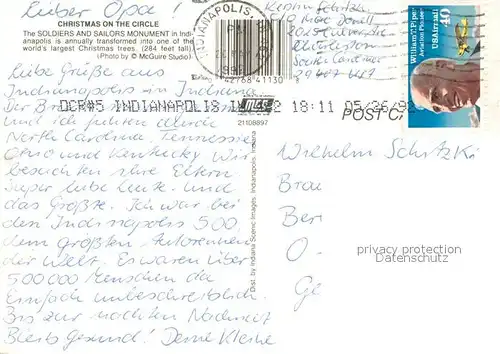 Lieber Opa!
CHRISTMAS ON THE CIRCLE
The SOLDIERS AND SAILORS MONUMENT in Indi-
anapolis is annually transformed into one of the
world's largest Christmas trees. (284 feet tall).
(Photo by © McGuire Studio)
Liebe Grüße aus
Indianapolis in Indiana
und ich fuhren durch
North Carolina, Tennessee,
Ohio und Kentucky. Wir
besuchten ihre Eltern
super liebe Leute und
das Größte. Ich war bei
den Indianapolis 500,
dem größten Autorennen
der Welt. Es waren über
500 000 Menschen da
Einfach unbeschreiblich.
Bis zur nächsten Nachricht
Bleib gesund! Deine Kleine
INDIANAPOLIS
42768 41130
OCR#5 INDIANAPOLIS, IN 18:11 05/26/92
21108897
Dist. by Indiana Scenic Images, Indianapolis, Indiana
2015 University
Charleston
South Carolina
29407 USA
William T. Piper
Aviation Pioneer
USAirmail
40
POST C
Wilhelm Schitzki
Brau
Ber
O-
Ge
privacy protection
Datenschutz